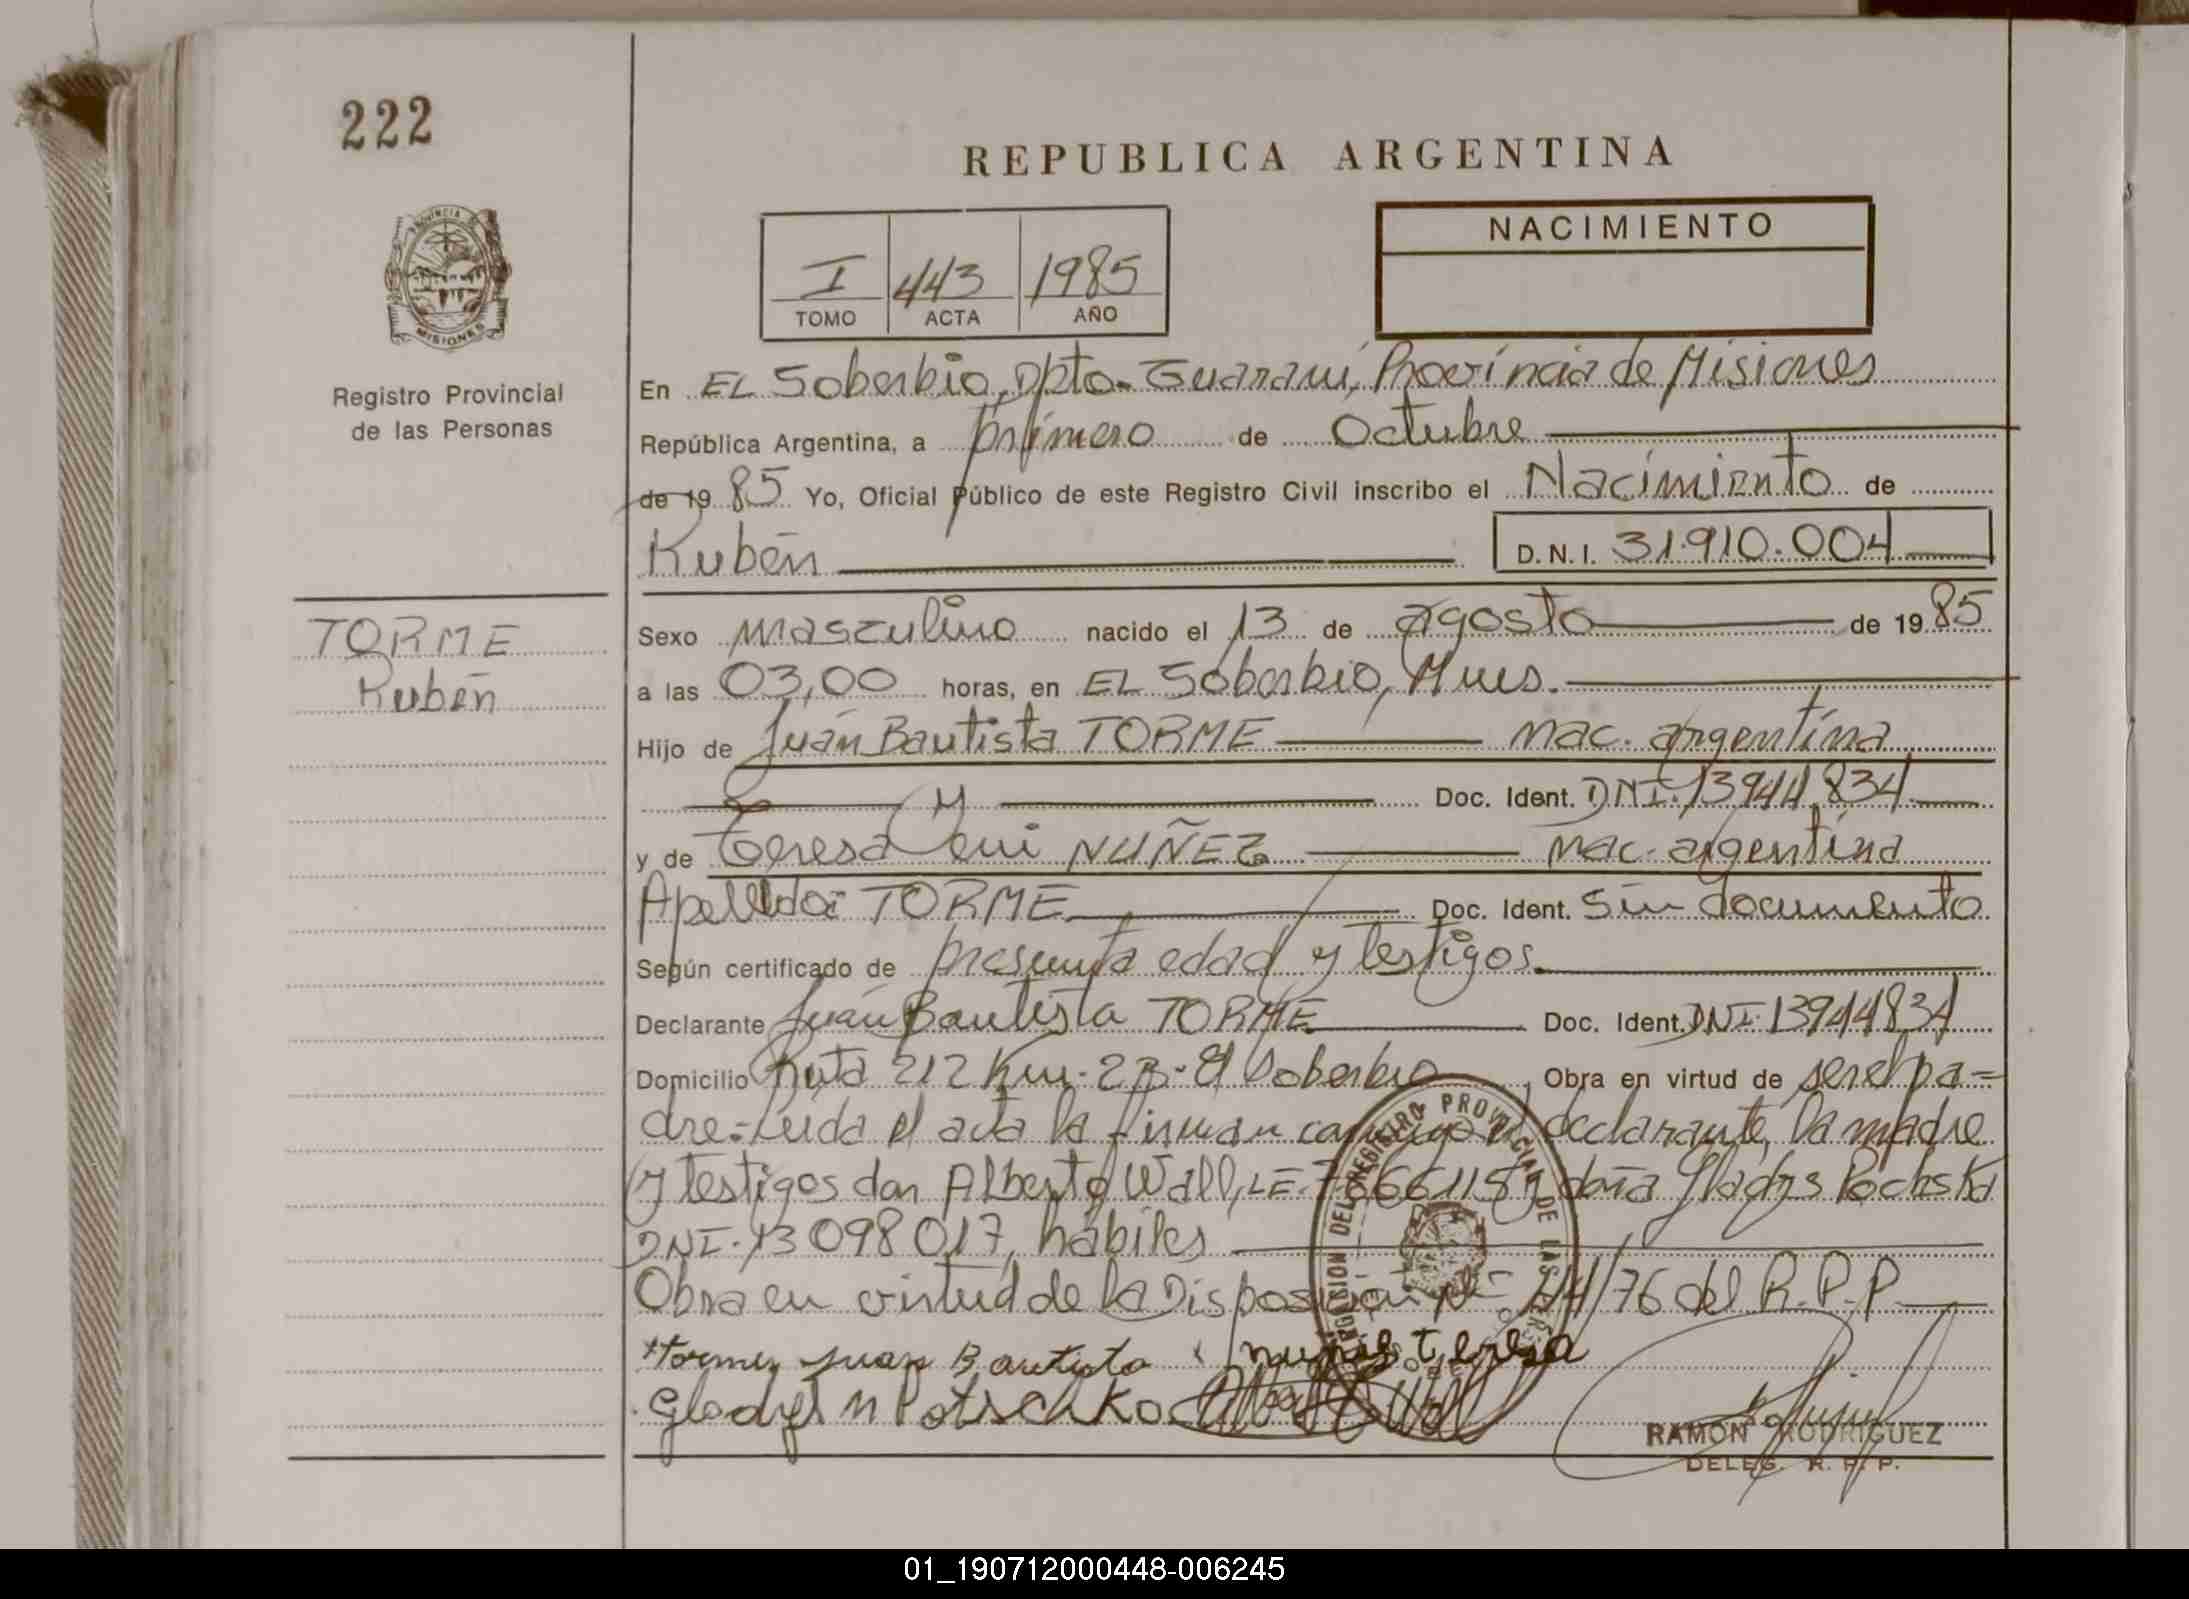 222
REPUBLICA ARGENTINA
NACIMIENTO
I 443 1985
TOMO ACTA AÑO
MISIONES
Registro Provincial
de las Personas
En EL Soberbio, Dpto. Guaraní, Provincia de Misiones
República Argentina, a primero de Octubre
de 1985 Yo, Oficial Público de este Registro Civil inscribo el Nacimiento de
Rubén D.N.I. 31.910.004
TORME
Rubén
Sexo masculino nacido el 13 de agosto de 1985
a las 03,00 horas, en EL Soberbio, Mnes.
Hijo de Juan Bautista TORME nac. argentina
y Doc. Ident. DNI. 13944834
y de Teresa NUÑEZ nac. argentina
Apellido: TORME Doc. Ident. Sin documento
Según certificado de presunta edad y testigos.
Declarante Juan Bautista TORME Doc. Ident. DNI. 13944834
Domicilio Ruta 212 Km. 23 - El Soberbio, Obra en virtud de ser el pa=
dre. Leida el acta la firman conmigo el declarante, la madre
y testigos don Alberto Wall, LE. 7666115 y doña Gladys Pochska
DNI. 13098017, hábiles
Obra en virtud de la Disposición Nº 14/76 del R.P.P.
torme juan Bautista nuñes teresa
Gladys N Potschko
RAMON RODRIGUEZ
DELEG. R. P. P.
01_190712000448-006245